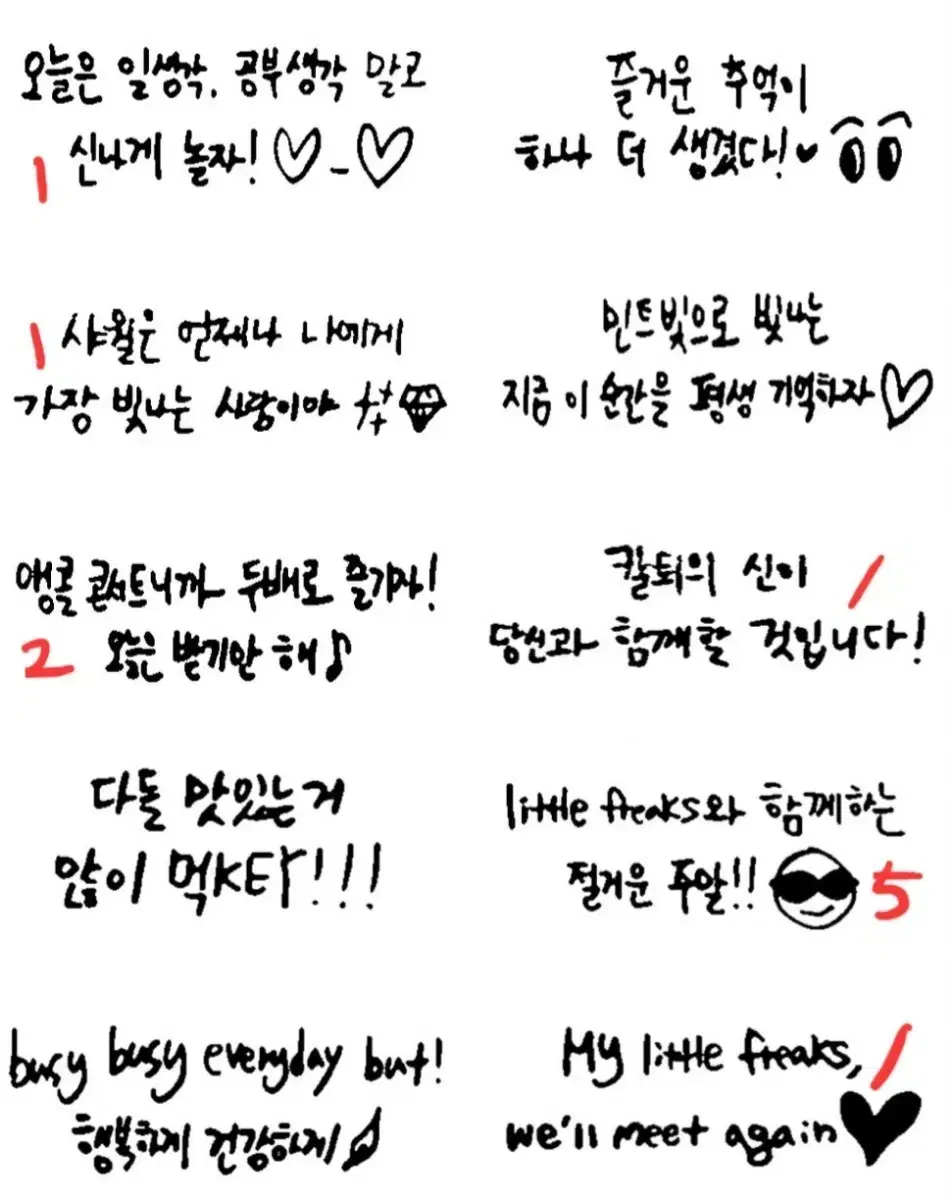 오늘은 일생각, 공부생각 말고
신나게 놀자! ♡-♡
1
즐거운 추억이
하나 더 생겼다!♥
1
샤월은 언제나 나에게
가장 빛나는 사람이야
민트빛으로 빛나는
지금 이 순간을 평생 기억하자♡
앵콜 콘서트니까 두배로 즐기자!
2
오늘은 받기만 해♪
칼퇴의 신이
당신과 함께할 것입니다!
다들 맛있는거
많이 먹KEY!!!
little freaks와 함께하는
즐거운 주말!!
5
busy busy everyday but!
행복하게 건강하게
My little freaks,
we'll meet again♥